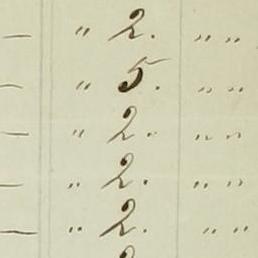 — " 2. " "
— " 5. " "
— " 2. " "
— " 2. " "
— " 2. " "